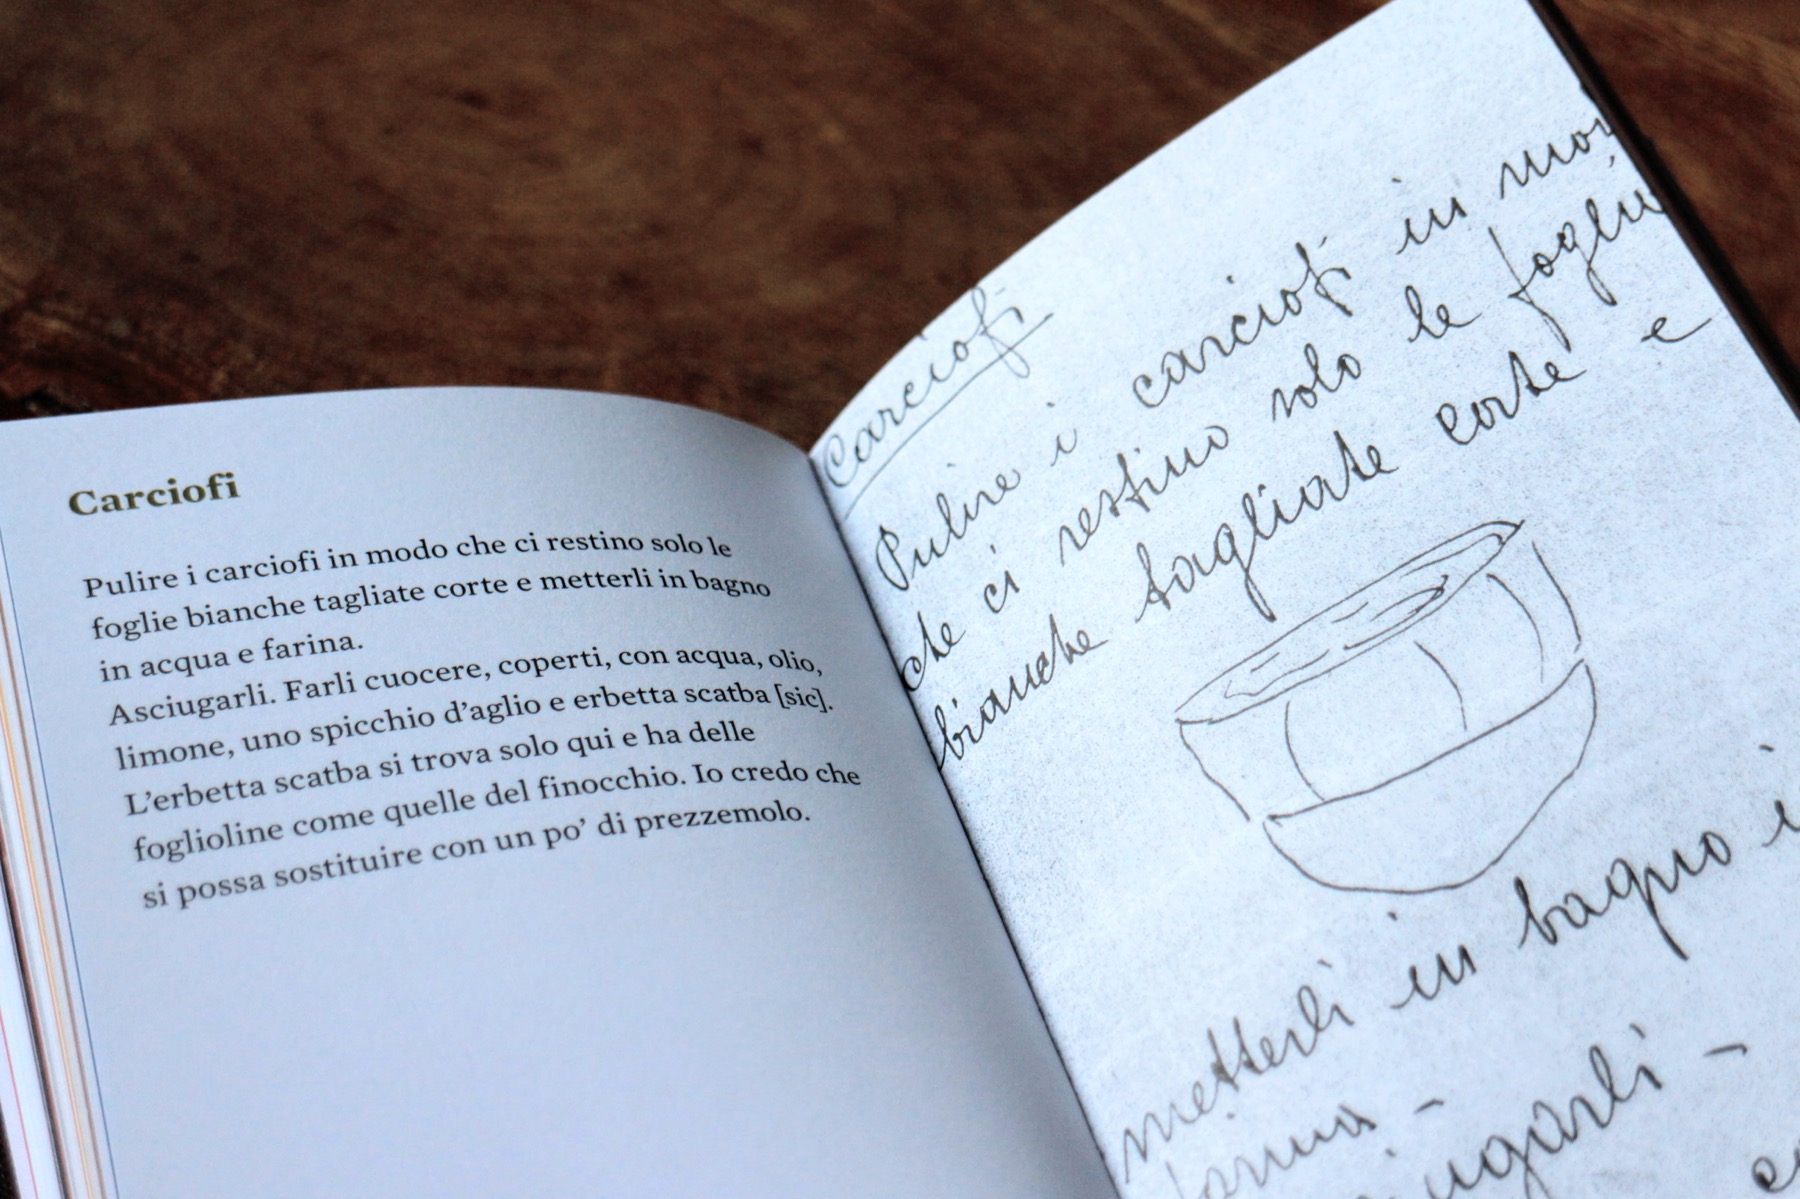 Carciofi
Pulire i carciofi in modo che ci restino solo le
foglie bianche tagliate corte e metterli in bagno
in acqua e farina.
Asciugarli. Farli cuocere, coperti, con acqua, olio,
limone, uno spicchio d'aglio e erbetta scatba [sic].
L'erbetta scatba si trova solo qui e ha delle
foglioline come quelle del finocchio. Io credo che
si possa sostituire con un po' di prezzemolo.
Carciofi
Pulire i carciofi in
che ci restino solo le
bianche tagliate corte e
metterli in bagno